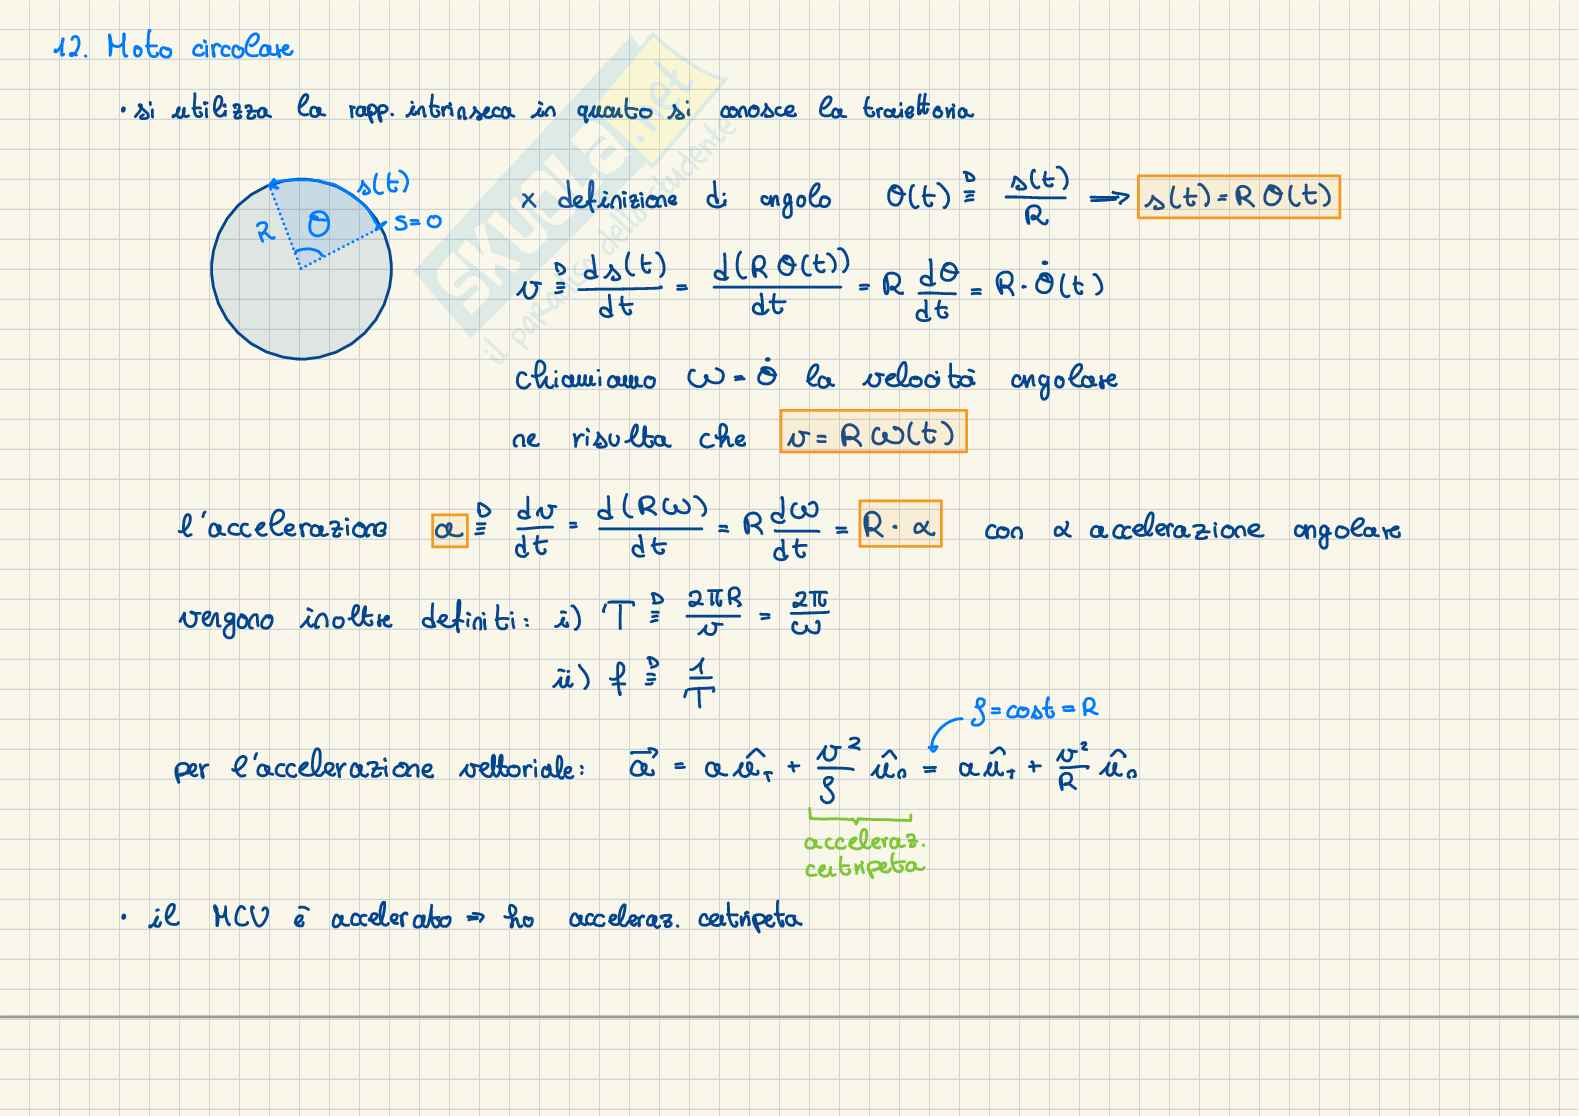 12. Moto circolare
• si utilizza la rapp. intrinseca in quanto si conosce la traiettoria
s(t)
R θ s=0
x definizione di angolo θ(t) ≝ s(t)/R ⟹ s(t) = R θ(t)
v ≝ ds(t)/dt = d(R θ(t))/dt = R dθ/dt = R · θ̇(t)
chiamiamo ω = θ̇ la velocità angolare
ne risulta che v = R ω(t)
l'accelerazione a ≝ dv/dt = d(Rω)/dt = R dω/dt = R · α con α accelerazione angolare
vengono inoltre definiti: i) T ≝ 2πR/v = 2π/ω
ii) f ≝ 1/T
ρ = cost = R
per l'accelerazione vettoriale: a⃗ = a û_T + v²/ρ û_n = a û_T + v²/R û_n
acceleraz.
centripeta
• il MCU è accelerato ⇒ ho acceleraz. centripeta
SKUOLA.net
il paradiso dello studente